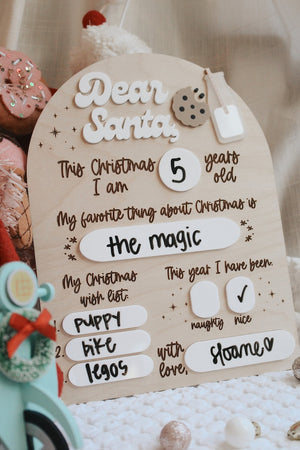 Dear
Santa,
This Christmas 5 years
I am old
My favorite thing about Christmas is
the magic
My Christmas This year I have been:
wish list:
✓
naughty nice
puppy
2. bike
legos
with sloane♡
love,